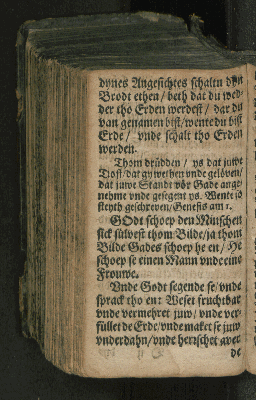 dynes Angesichtes schaltu dyn
Brodt ethen / beth dat du wed-
der tho Erden werdest / dar du
van genamen bist / wente du bist
Erde / vnde schalt tho Erden
werden.
Thom drüdden / ys dat juwe
Trost / dat gy weten vnde gelöven /
dat juwe Standt vör Gade ange-
nehme vnde gesegent ys. Wente jd
steyth geschreven / Genesis am 1.
GOdt schoep den Minschen
sick sülvest thom Bilde / ja thom
Bilde Gades schoep he en / He
schoep se einen Mann vnde eine
Frouwe.
Vnde Godt segende se / vnde
sprack tho en: Weset fruchtbar
vnde vermehret juw / vnde ver-
füllet de Erde / vnde maket se juw
vnderdahn / vnde herrschet aver
de